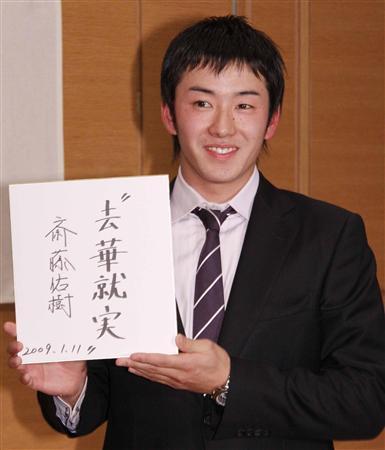 “去華就実”
斎藤佑樹
2009.1.11